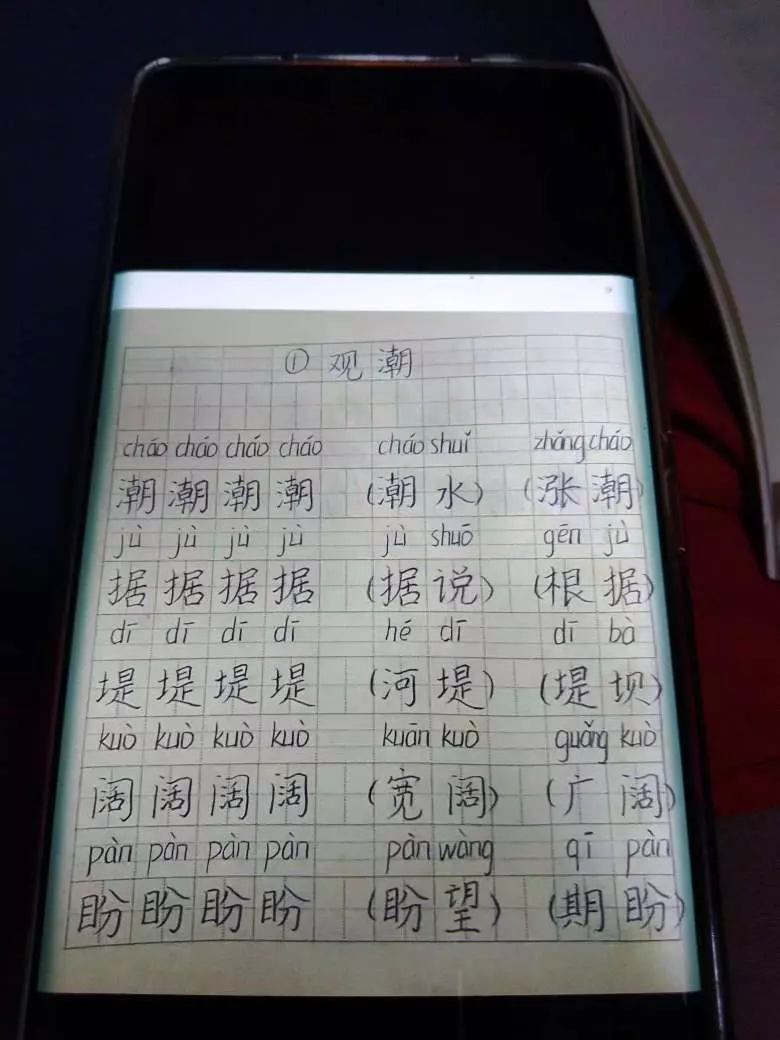 ① 观潮
cháo cháo cháo cháo cháo shuǐ zhǎng cháo
潮 潮 潮 潮 (潮 水) (涨 潮)
jù jù jù jù jù shuō gēn jù
据 据 据 据 (据 说) (根 据)
dī dī dī dī hé dī dī bà
堤 堤 堤 堤 (河 堤) (堤 坝)
kuò kuò kuò kuò kuān kuò guǎng kuò
阔 阔 阔 阔 (宽 阔) (广 阔)
pàn pàn pàn pàn pàn wàng qī pàn
盼 盼 盼 盼 (盼 望) (期 盼)